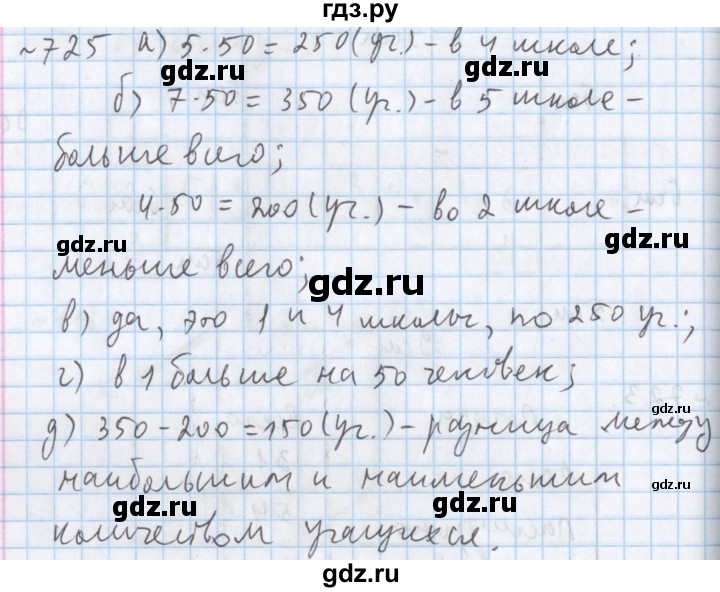 гдз.ру
№725 а) 5·50 = 250 (уч.) - в 4 школе;
gdz.ru
gdz.ru
б) 7·50 = 350 (уч.) - в 5 школе -
gdz.ru
gdz.ru
больше всего;
4·50 = 200 (уч.) - во 2 школе -
gdz.ru
gdz.ru
меньше всего;
gdz.ru
в) да, это 1 и 4 школы, по 250 уч.;
г) в 1 больше на 50 человек;
gdz.ru
д) 350 - 200 = 150 (уч.) - разница между
наибольшим и наименьшим
gdz.ru
gdz.ru
количеством учащихся.
gdz.ru
gdz.ru
гдз.ру